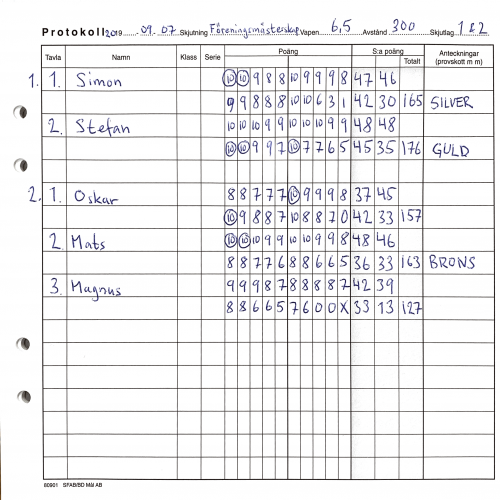 Protokoll 2019-09-07 Skjutning Föreningsmästerskap Vapen 6,5 Avstånd 300 Skjutlag 1 & 2
Tavla Namn Klass Serie Poäng S:a poäng Totalt Anteckningar (provskott m m)
1. 1. Simon 10 10 9 8 8 10 9 9 9 8 47 46
9 9 8 8 8 10 10 6 3 1 42 30 165 SILVER
2. Stefan 10 10 10 9 9 10 10 10 9 9 48 48
10 10 9 9 7 10 7 7 6 5 45 35 176 GULD
2. 1. Oskar 8 8 7 7 7 10 9 9 9 8 37 45
10 9 8 8 7 10 8 8 7 0 42 33 157
2. Mats 10 10 10 9 9 10 10 9 9 8 48 46
8 8 7 7 6 8 8 6 6 5 36 33 163 BRONS
3. Magnus 9 9 9 8 7 8 8 8 8 7 42 39
8 8 6 6 5 7 6 0 0 X 33 13 127
80901 SFAB/BD Mål AB